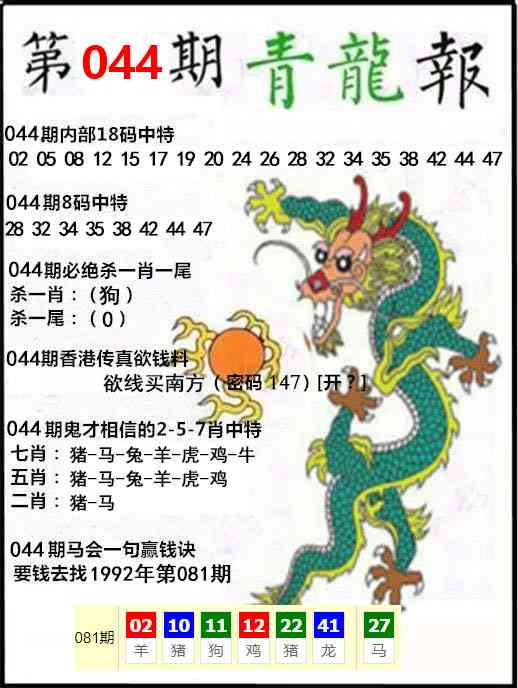 第044期青龍報
044期内部18码中特
02 05 08 12 15 17 19 20 24 26 28 32 34 35 38 42 44 47
044期8码中特
28 32 34 35 38 42 44 47
044期必绝杀一肖一尾
杀一肖：（狗）
杀一尾：（0）
044期香港传真欲钱料
欲线买南方（密码 147）[开？]
044期鬼才相信的2-5-7肖中特
七肖：猪-马-兔-羊-虎-鸡-牛
五肖：猪-马-兔-羊-虎-鸡
二肖：猪-马
044期马会一句赢钱诀
要钱去找1992年第081期
081期 02 10 11 12 22 41 27
羊 猪 狗 鸡 猪 龙 马